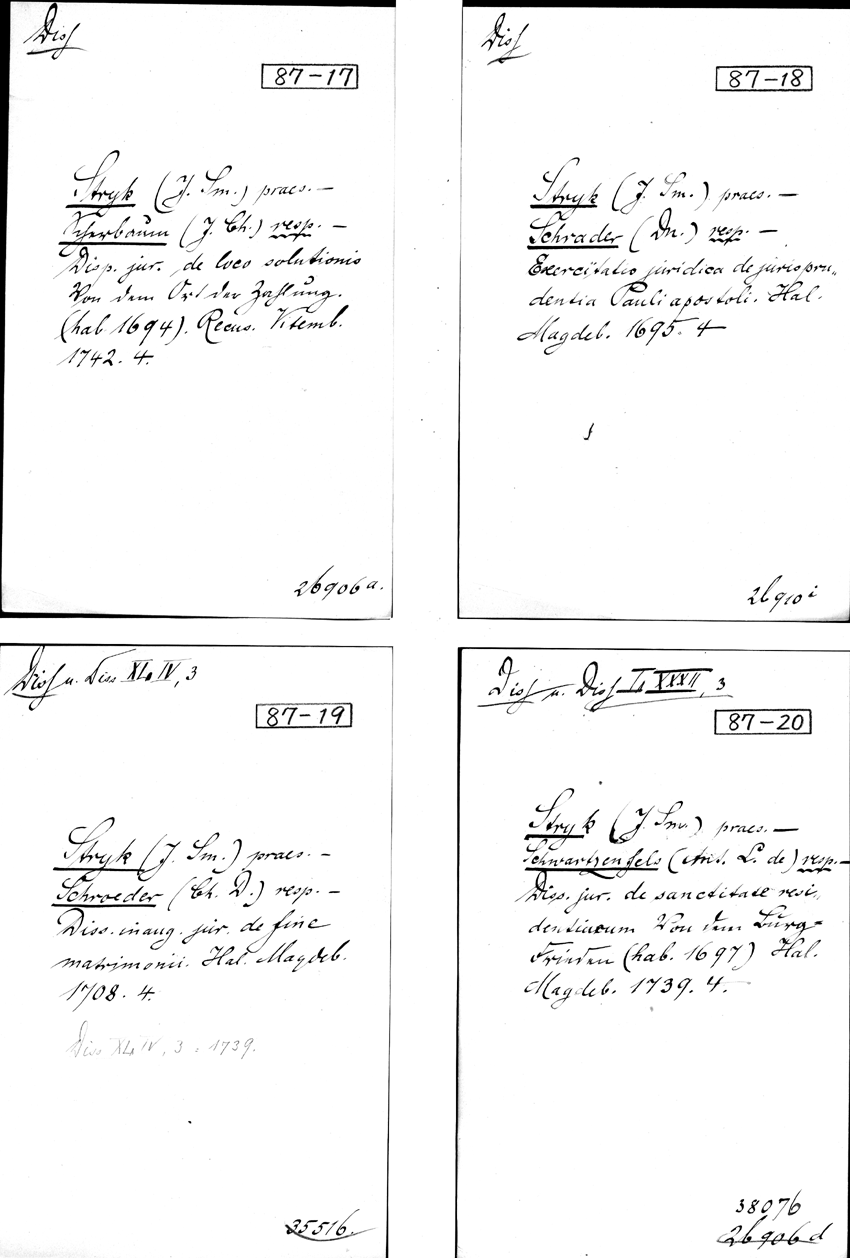 Diss
87-17
Stryk (J. Sm.) praes. —
Scherbaum (J. Ch.) resp. —
Disp. jur. de loco solutionis
Von dem Ort der Zahlung.
(hab 1694). Recus. Vitemb.
1742. 4.
26906 a.
Diss
87-18
Stryk (J. Sm.) praes. —
Schrader (Dn.) resp. —
Exercitatio juridica de jurispru„
dentia Pauli apostoli. Hal.
Magdeb. 1695. 4
26910 i
Diss u. Diss XL, IV, 3
87-19
Stryk (J. Sm.) praes. —
Schroeder (Ch. D.) resp. —
Diss. inaug. jur. de fine
matrimonii. Hal. Magdeb.
1708. 4.
Diss XL, IV, 3 = 1739.
35516.
Diss u. Diss L, XXXII, 3
87-20
Stryk (J. Sm.) praes. —
Schwartzenfels (Ant. L. de) resp. —
Diss. jur. de sanctitate resi„
dentiarum Von dem Burg=
Frieden (hab. 1697) Hal.
Magdeb. 1739. 4.
38076
26906 d